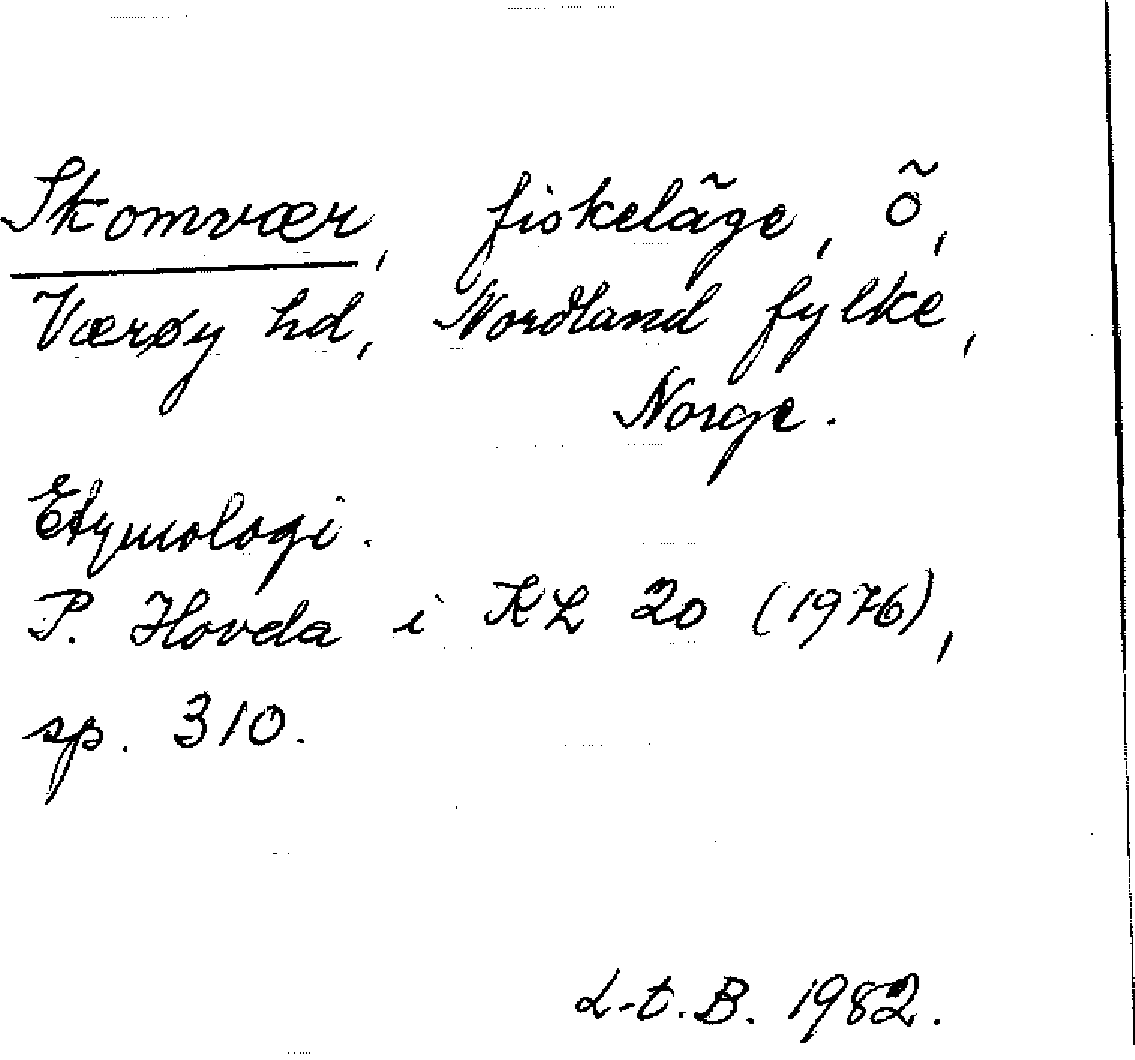 Skomvær, fiskeläge, ö,
Værøy hd, Nordland fylke,
Norge.
Etymologi.
P. Hovda i KL 20 (1976),
sp. 310.
L-t. B. 1982.